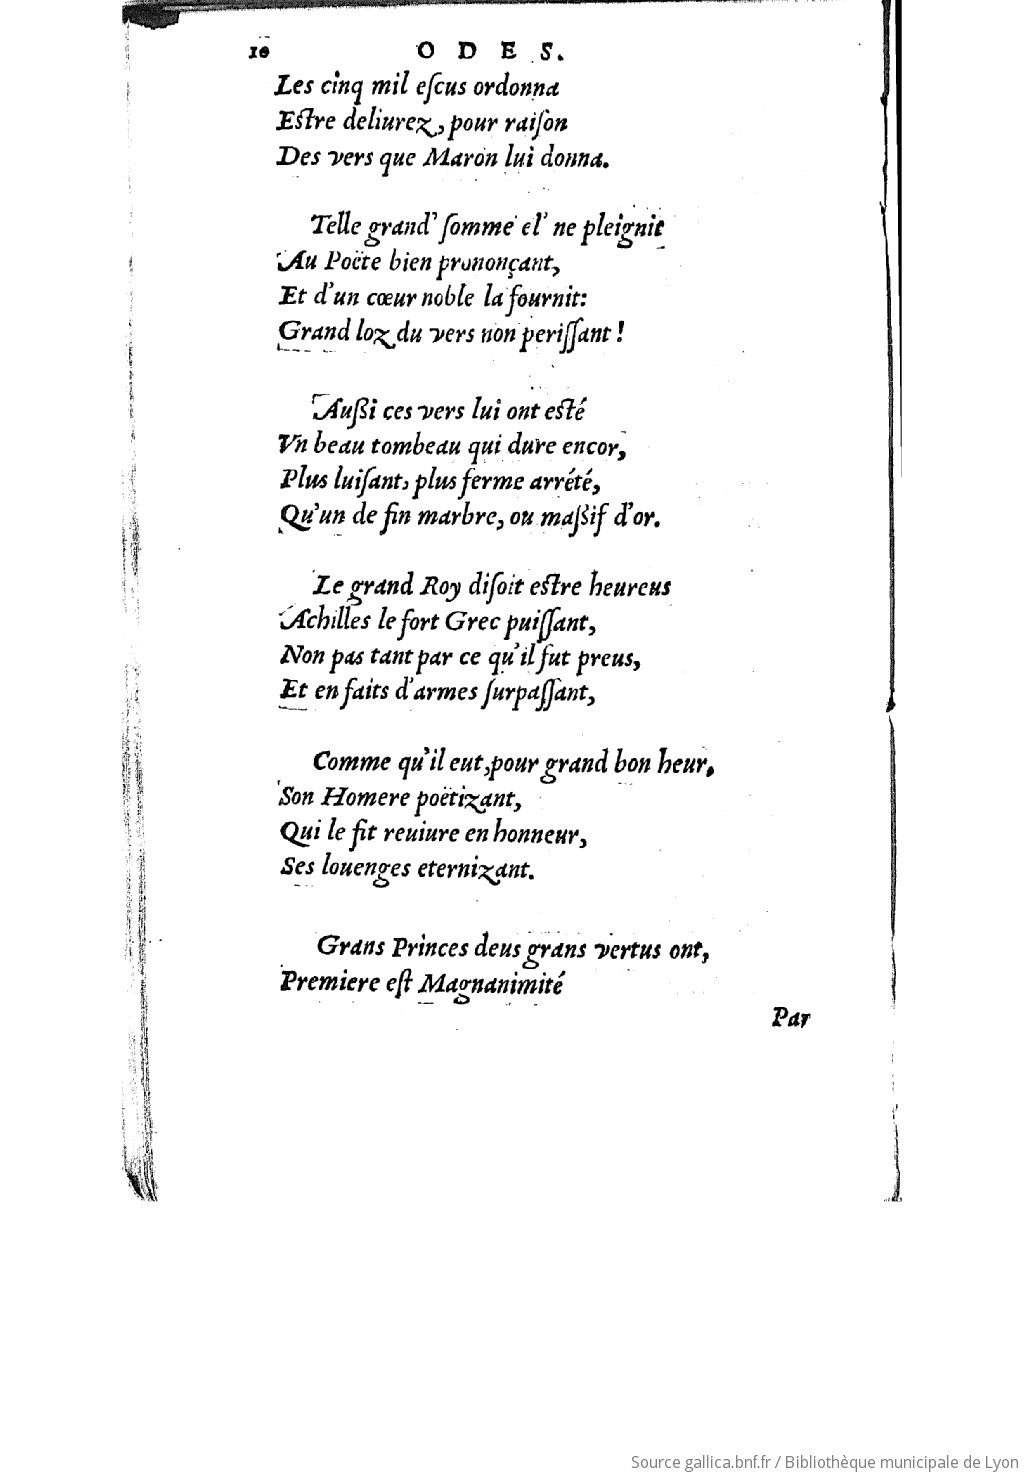 10 ODES.
Les cinq mil eſcus ordonna
Eſtre deliurez, pour raiſon
Des vers que Maron lui donna.
Telle grand' ſomme el' ne pleignit
Au Poëte bien prononçant,
Et d'un cœur noble la fournit:
Grand loz du vers non periſſant!
Außi ces vers lui ont eſté
Vn beau tombeau qui dure encor,
Plus luiſant, plus ferme arrété,
Qu'un de fin marbre, ou maßif d'or.
Le grand Roy diſoit eſtre heureus
Achilles le fort Grec puiſſant,
Non pas tant par ce qu'il fut preus,
Et en faits d'armes ſurpaſſant,
Comme qu'il eut, pour grand bon heur,
Son Homere poëtizant,
Qui le fit reuiure en honneur,
Ses louenges eternizant.
Grans Princes deus grans vertus ont,
Premiere eſt Magnanimité
Par
Source gallica.bnf.fr / Bibliothèque municipale de Lyon